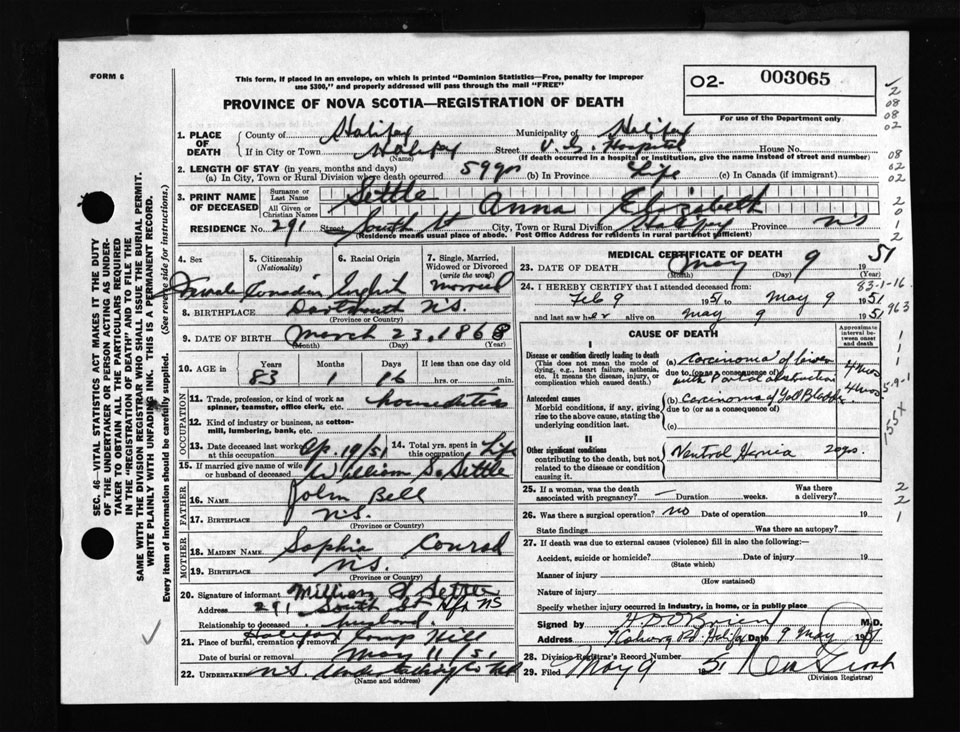 FORM 6
This form, if placed in an envelope, on which is printed "Dominion Statistics—Free, penalty for improper
use $300," and properly addressed will pass through the mail "FREE"
O2- 003065
For use of the Department only
PROVINCE OF NOVA SCOTIA—REGISTRATION OF DEATH
1. PLACE OF DEATH
County of Halifax Municipality of Halifax
If in City or Town Halifax Street V.G. Hospital House No.
(Name) (If death occurred in a hospital or institution, give the name instead of street and number)
2. LENGTH OF STAY (in years, months and days)
(a) In City, Town or Rural Division where death occurred. 59 yrs (b) In Province Life (c) In Canada (if immigrant)
3. PRINT NAME OF DECEASED
Surname or Last Name Settle
All Given or Christian Names Anna Elizabeth
RESIDENCE No. 291 Street South St City, Town or Rural Division Halifax Province N.S
(Residence means usual place of abode. Post Office Address for residents in rural parts not sufficient)
4. Sex Female
5. Citizenship (Nationality) Canadian
6. Racial Origin English
7. Single, Married, Widowed or Divorced (write the word) Married
8. BIRTHPLACE Dartmouth N.S.
(Province or Country)
9. DATE OF BIRTH March 23, 1868
(Month) (Day) (Year)
10. AGE Years 83 Months 1 Days 16 If less than one day old hrs. or min.
OCCUPATION
11. Trade, profession, or kind of work as spinner, teamster, office clerk, etc. housewife
12. Kind of industry or business, as cotton-mill, lumbering, bank, etc.
13. Date deceased last worked at this occupation Ap. 19/51
14. Total yrs. spent in this occupation Life
15. If married give name of wife or husband of deceased William S. Settle
FATHER
16. NAME John Bell
17. BIRTHPLACE N.S.
(Province or Country)
MOTHER
18. MAIDEN NAME Sophia Conrad
19. BIRTHPLACE N.S.
(Province or Country)
20. Signature of informant William S. Settle
Address 291 South St Hfx NS
Relationship to deceased husband
21. Place of burial, cremation or removal Halifax Camp Hill
Date of burial or removal May 11/51
22. UNDERTAKER N.S. Undertaking Co Ltd
(Name and address)
MEDICAL CERTIFICATE OF DEATH
23. DATE OF DEATH May 9 1951
(Month) (Day) (Year)
24. I HEREBY CERTIFY that I attended deceased from: 83-1-16
Feb 9 1951 to May 9 1951
and last saw her alive on May 9 1951
CAUSE OF DEATH
Approximate interval between onset and death
I
Disease or condition directly leading to death
(This does not mean the mode of dying, e.g., heart failure, asthenia, etc. It means the disease, injury, or complication which caused death.)
(a) Carcinoma of liver 4 mos
due to (or as a consequence of)
with Portal obstruction
Antecedent causes
Morbid conditions, if any, giving rise to the above cause, stating the underlying condition last.
(b) Carcinoma of Gall Bladder 4 mos
due to (or as a consequence of)
(c)
II
Other significant conditions
contributing to the death, but not related to the disease or condition causing it.
Ventral Hernia 20 yrs.
25. If a woman, was the death associated with pregnancy? — Duration weeks. Was there a delivery?
26. Was there a surgical operation? no Date of operation 19
State findings Was there an autopsy?
27. If death was due to external causes (violence) fill in also the following:—
Accident, suicide or homicide? Date of injury 19
(State which)
Manner of injury
(How sustained)
Nature of injury
Specify whether injury occurred in industry, in home, or in public place
Signed by H D O'Brien M.D.
Address Halifax Date 9 May 1951
28. Division Registrar's Record Number
29. Filed May 9 51
(Division Registrar)
SEC. 46—VITAL STATISTICS ACT MAKES IT THE DUTY
OF THE UNDERTAKER OR PERSON ACTING AS UNDER-
TAKER TO OBTAIN ALL THE PARTICULARS REQUIRED
IN THE "REGISTRATION OF DEATH" AND TO FILE THE
SAME WITH THE DIVISION REGISTRAR WHO SHALL ISSUE THE BURIAL PERMIT.
WRITE PLAINLY WITH UNFADING INK. THIS IS A PERMANENT RECORD.
Every item of information should be carefully supplied. (See reverse side for instructions.)
2
08
08
02
08
02
02
2
0
1
2
963
1
1
1
5-9-1
155X
2
2
1